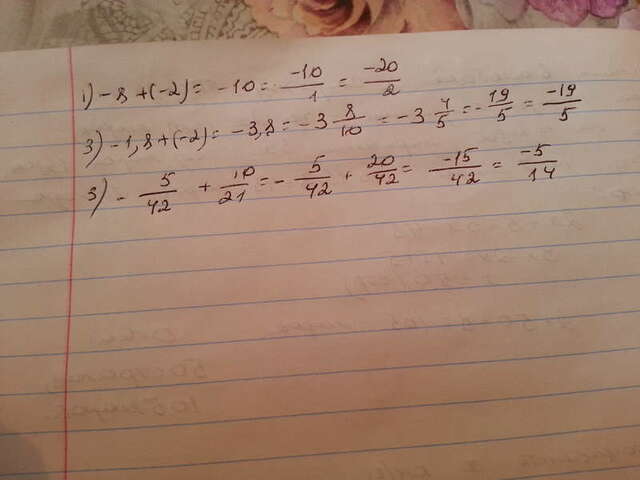 1) -8 + (-2) = -10 = -10/1 = -20/2
3) -1,8 + (-2) = -3,8 = -3 8/10 = -3 4/5 = -19/5 = -19/5
5) - 5/42 + 10/21 = - 5/42 + 20/42 = -15/42 = -5/14